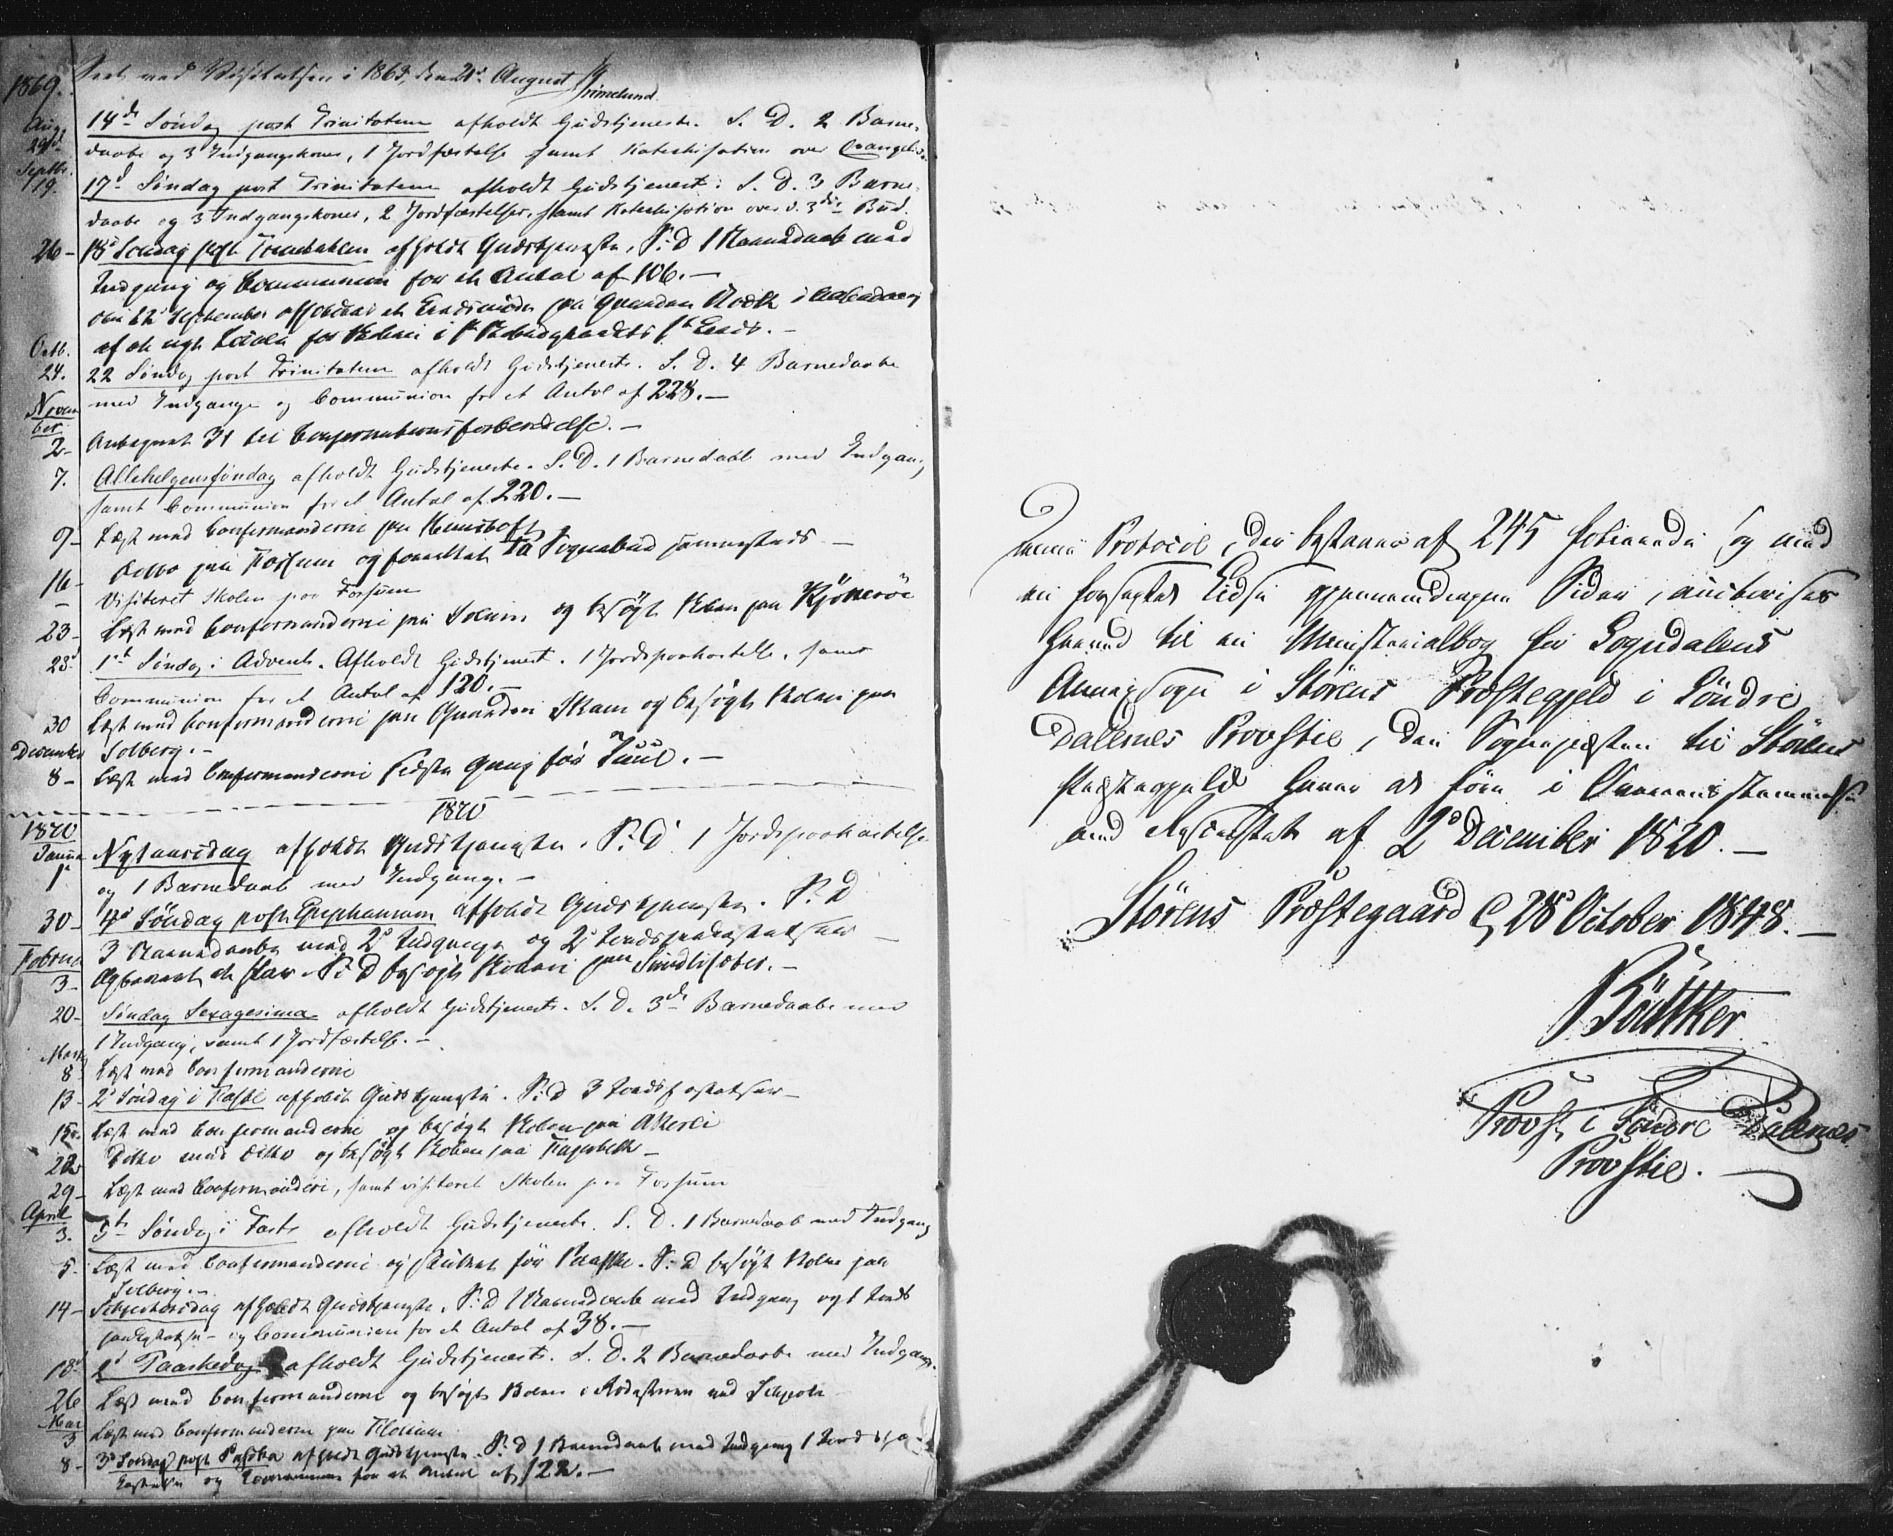 1869. Seet ved Visitatsen i 1869, den 21de August
Grimelund
Aug. 29de 14de Søndag post Trinitatem afholdt Gudstjeneste. S. D. 2 Barne-
daabe og 3 Indgangskoner, 1 Jordfæstelse samt Katechisation over Evangeliet.
Septbr. 19. 17de Søndag post Trinitatem afholdt Gudstjeneste. S. D. 3 Barne-
daabe og 3 Indgangskoner, 2 Jordfæstelser, samt Katechisation over d. 3die Bud.
26 - 18de Søndag post Trinitatem afholdt Gudstjeneste, S. D. 1 Barnedaab med
Indgang og Communion for et Antal af 106. -
den 12 September afholdtes et paa i
af et nyt for Skolen i
Octb. 24. 22 Søndag post Trinitatem afholdt Gudstjeneste. S. D. 4 Barnedaabe
med Indgange og Communion for et Antal af 228. -
November 2 - Antegnet 31 til Confirmationsforberedelse. -
7. Allehelgensøndag afholdt Gudstjeneste. S. D. 1 Barnedaab med Indgang,
samt Communion for et Antal af 220. -
9 - Læst med Confirmanderne paa
16 - Ditto paa Fossum og foretaget Sognebud sammesteds -
- Visiteret Skolen paa Fossum
23 - Læst med Confirmanderne paa Solem og besøgt Skolen paa
28. 1ste Søndag i Advent. Afholdt Gudstjenest. 1 Jordspaakastelse, samt
Communion for et Antal af 120. -
30 Læst med Confirmanderne paa Gaarden Skam og besøgt Skolen paa
Solberg. -
December 8 - Læst med Confirmanderne sidste Gang før Juul. -
1870
1870 Januar 1. Nytaarsdag afholdt Gudstjeneste. S. D. 1 Jordspaakastelse
og 1 Barnedaab med Indgang. -
30 - 4de Søndag post Epiphaniam afholdt Gudstjeneste. S. D.
3 Barnedaabe med 2 Indgange og 2 Jordspaakastelser -
Februar 3 - S. D. besøgt Skolen paa
20 - Søndag Sexagesima afholdt Gudstjeneste. S. D. 3de Barnedaabe med
1 Indgang, samt 1 Jordfæstelse. -
Marts 8 Læst med Confirmanderne
13 - 2 Søndag i Faste afholdt Gudstjeneste. S. D. 3 Jordfæstelser -
15 - Læst med Confirmanderne og besøgt Skolen paa
22 Ditto med Ditto og besøgt Skolen paa -
29 - Læst med Confirmanderne, samt visiteret Skolen paa Fossum
April 3. 5te Søndag i Faste afholdt Gudstjeneste. S. D. 1 Barnedaab med Indgang
5. Læst med Confirmanderne og sluttet før Paaske. S. D. besøgt Skolen paa
Solberg. -
14 - Skjærthorsdag afholdt Gudstjeneste. S. D. 1 Barnedaab med Indgang og 1 Jords
paakastelse - og Communion for et Antal af 38. -
18 2d Paaskedag afholdt Gudstjeneste. S. D. 2 Barnedaabe med Indgang.
26 Læst med Confirmanderne og besøgt Skolen i ved
Mai 3 Læst med Confirmanderne paa
8 - 3d Søndag post Paaske afholdt Gudstjeneste. S. D. 1 Barnedaab med Indgang 1 Jordspaa-
kastelse og Communion for et Antal af 122. -
Denne Protocol, der bestaaer af 245 folierede og med
en forseglet Lidse gjennemdragne Sider, autoriseres
herved til en Ministerialbog for Sogndalens
Annexsogn i Størens Præstegjeld i Søndre
Dalernes Provstie, den Sognepræsten til Størens
Præstegjeld haver at føre i Overensstemmelse
med Rescriptet af 2d December 1820. -
Størens Præstegaard d. 28d October 1848. -
Böttker
Provst i Søndre Dalernes
Provstie.